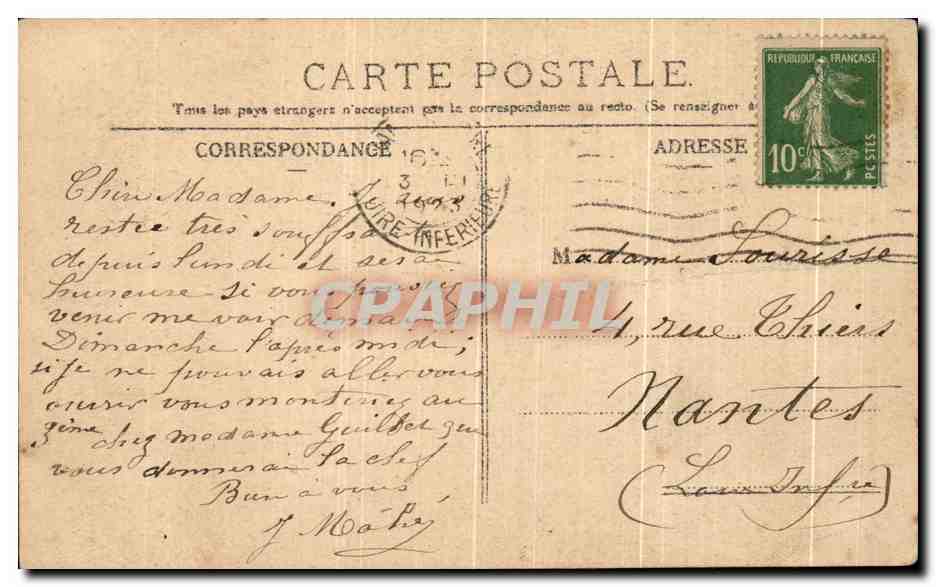 CARTE POSTALE
Tous les pays étrangers n'acceptent pas la correspondance au recto. (Se renseigner à
CORRESPONDANCE
ADRESSE
REPUBLIQUE FRANÇAISE
10c
POSTES
3
1923
LOIRE-INFERIEURE
Chère Madame.
restée très souffrante
depuis lundi et serai
heureuse si vous pouvez
venir me voir demain
Dimanche l'après midi;
si je ne pouvais aller vous
ouvrir vous monteriez au
2ème chez madame Guillet qui
vous donnerai la clef
Bien à vous
J Mahé
Madame Sourisse
4, rue Thiers
Nantes
(Loire Infre)
CPAPHIL